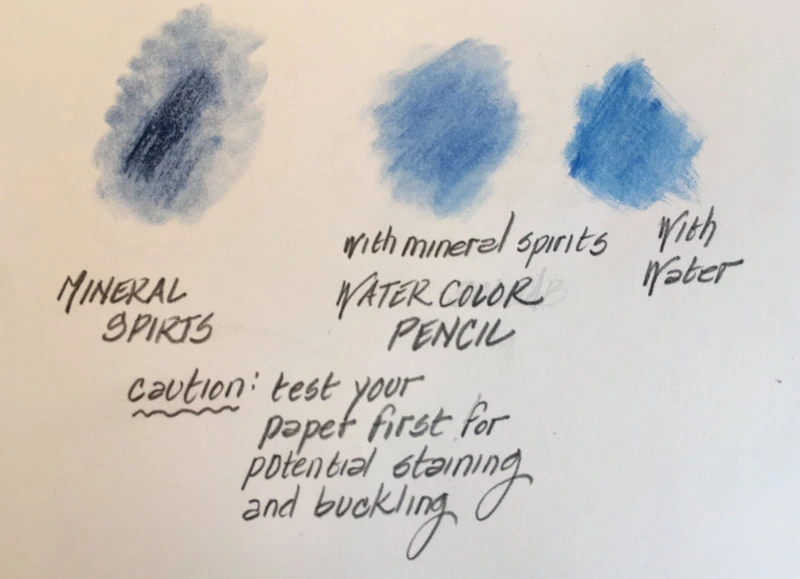 with mineral spirits
With
Water
MINERAL
SPIRTS
WATER COLOR
PENCIL
caution: test your
paper first for
potential staining
and buckling